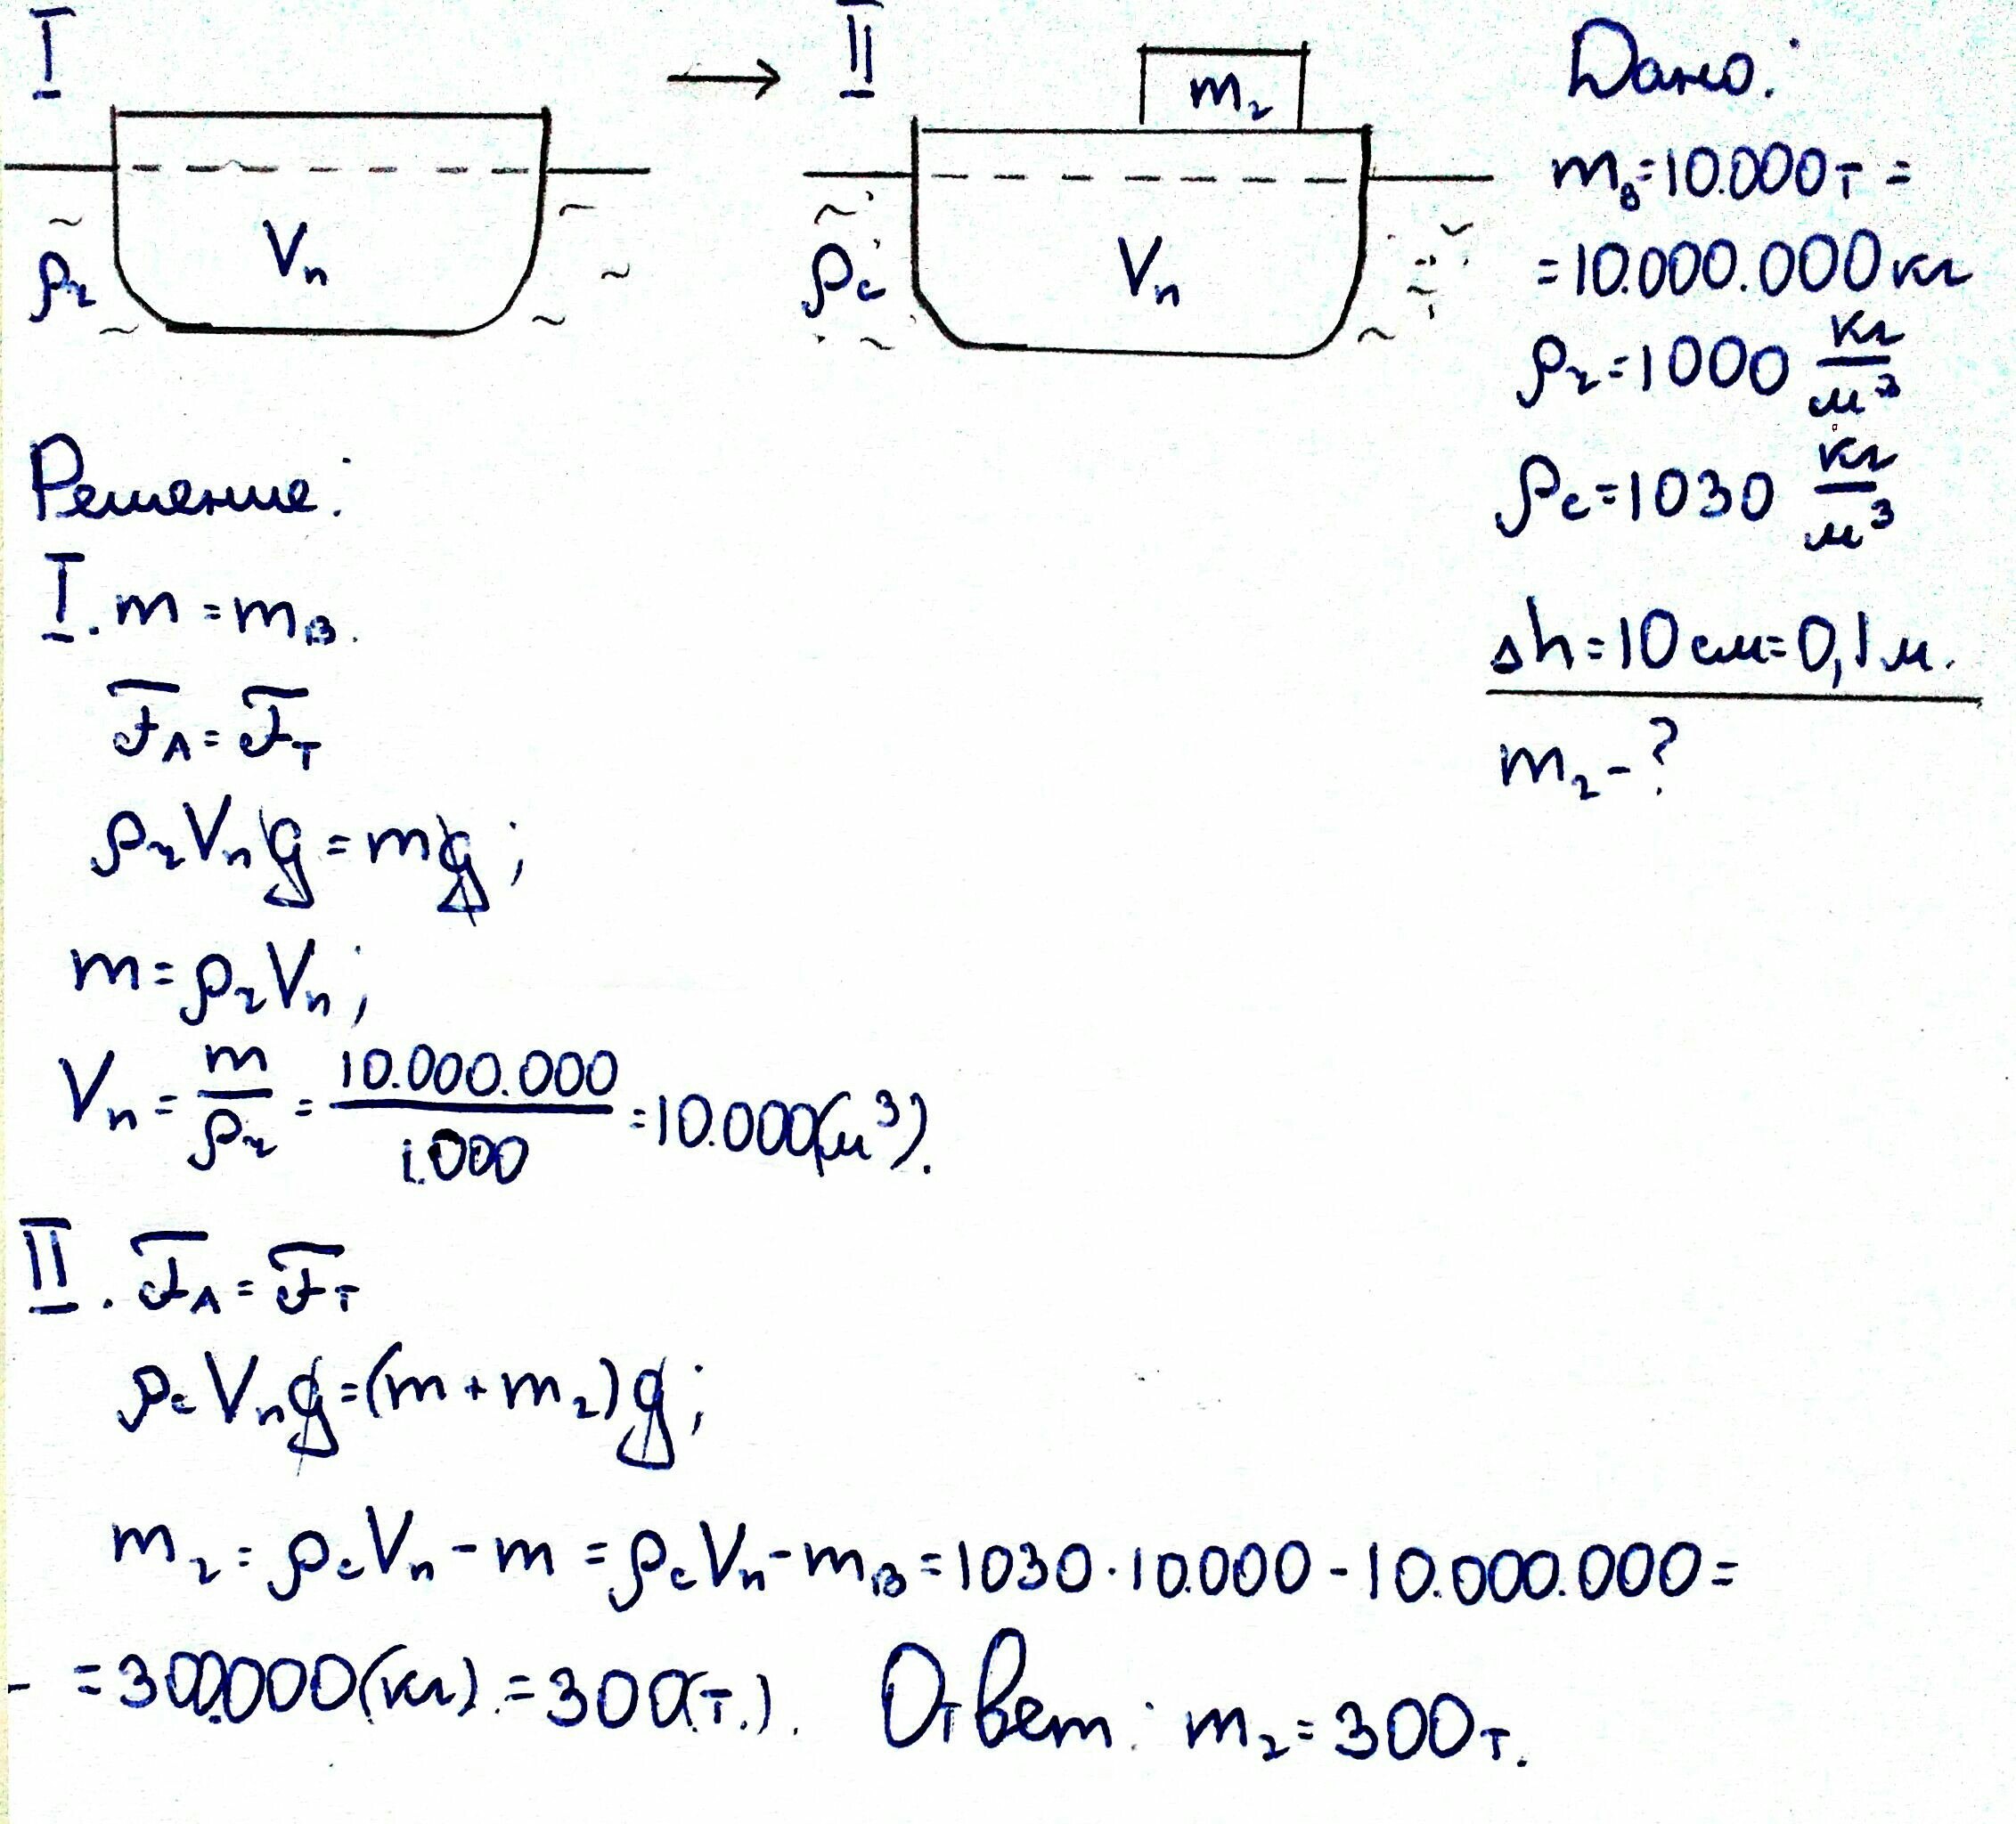 I → II
m₂
ρ₂ Vп
ρс Vп
Дано:
m₈=10.000т =
=10.000.000кг
ρ₂=1000 кг/м³
ρс=1030 кг/м³
Δh=10см=0,1м.
m₂-?
Решение:
I. m=mв.
F̅A=F̅т
ρ₂Vпg=mg;
m=ρ₂Vп;
Vп=m/ρ₂=10.000.000/1.000=10.000(м³).
II. F̅A=F̅т
ρсVпg=(m+m₂)g;
m₂=ρсVп-m=ρсVп-mв=1030·10.000-10.000.000=
=300.000(кг).=300(т.). Ответ: m₂=300т.